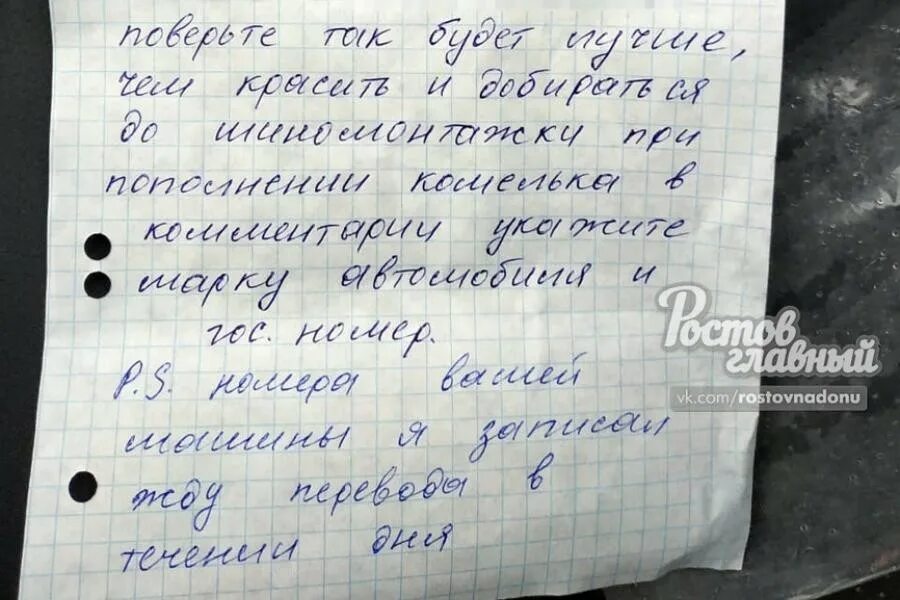 поверьте так будет лучше,
чем красить и добираться
до шиномонтажки при
пополнении комелька в
комментарии укажите
марку автомобиля и
гос. номер.
P.S. номера вашей
машины я записал
жду перевода в
течении дня
Ростов
главный
vk.com/rostovnadonu